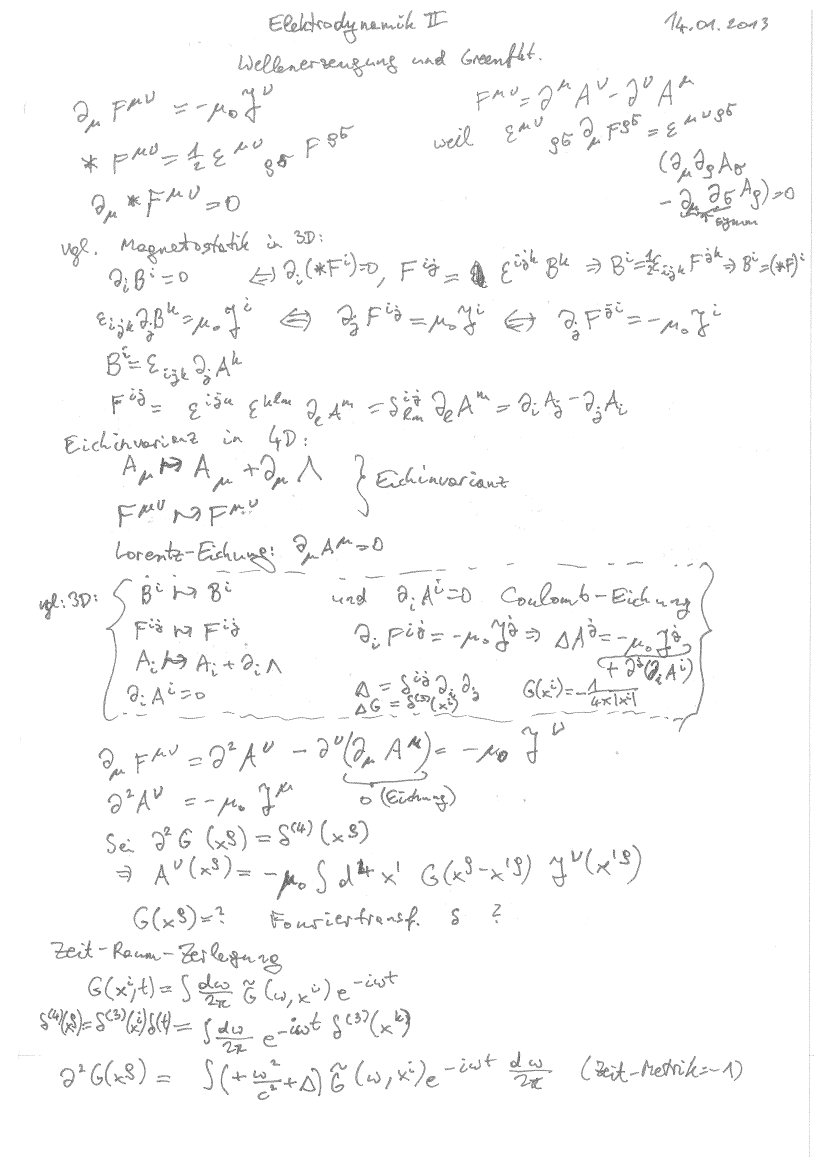 Elektrodynamik II 14.01.2013
Wellenerzeugung und Greenfkt.
∂_μ F^{μν} = -μ₀ J^ν F^{μν} = ∂^μ A^ν - ∂^ν A^μ
* F^{μν} = 1/2 ε^{μν}_{ρσ} F^{ρσ} weil ε^{μν}_{ρσ} ∂_μ F^{ρσ} = ε^{μνρσ}
(∂_μ ∂_ρ A_σ
∂_μ *F^{μν} = 0 - ∂_μ ∂_σ A_ρ) = 0
symm
vgl. Magnetostatik in 3D:
∂_i B^i = 0 ⇔ ∂_i (*F^i) = 0, F^{ij} = ε^{ijk} B^k ⇒ B^i = 1/2 ε_{ijk} F^{jk} ⇒ B^i = (*F)^i
ε_{ijk} ∂_j B^k = μ₀ J^i ⇔ ∂_j F^{ij} = μ₀ J^i ⇔ ∂_j F^{ji} = -μ₀ J^i
B^i = ε_{ijk} ∂_j A^k
F^{ij} = ε^{ijk} ε^{klm} ∂_l A^m = δ^{ij}_{lm} ∂_l A^m = ∂_i A_j - ∂_j A_i
Eichinvarianz in 4D:
A_μ ↦ A_μ + ∂_μ Λ } Eichinvarianz
F^{μν} ↦ F^{μν}
Lorentz-Eichung: ∂_μ A^μ = 0
vgl: 3D: B^i ↦ B^i und ∂_i A^i = 0 Coulomb-Eichung
F^{ij} ↦ F^{ij} ∂_i F^{ij} = -μ₀ J^j ⇒ Δ A^j = -μ₀ J^j
A_i ↦ A_i + ∂_i Λ + ∂^j (∂_i A^i)
∂_i A^i = 0 Δ = δ^{ij} ∂_i ∂_j G(x^i) = -1/(4π|x^i|)
ΔG = δ^{(3)}(x^i)
∂_μ F^{μν} = ∂² A^ν - ∂^ν (∂_μ A^μ) = -μ₀ J^ν
∂² A^ν = -μ₀ J^μ 0 (Eichung)
Sei ∂² G (x^ρ) = δ^{(4)} (x^ρ)
⇒ A^ν (x^ρ) = -μ₀ ∫ d^4 x' G(x^ρ - x'^ρ) J^ν (x'^ρ)
G(x^ρ) = ? Fouriertransf. δ ?
Zeit-Raum-Zerlegung
G(x^i, t) = ∫ dω/2π G̃ (ω, x^i) e^{-iωt}
δ^{(4)}(x^ρ) = δ^{(3)}(x^i) δ(t) = ∫ dω/2π e^{-iωt} δ^{(3)} (x^k)
∂² G(x^ρ) = ∫ (+ ω²/c² + Δ) G̃ (ω, x^i) e^{-iωt} dω/2π (Zeit-Metrik = -1)